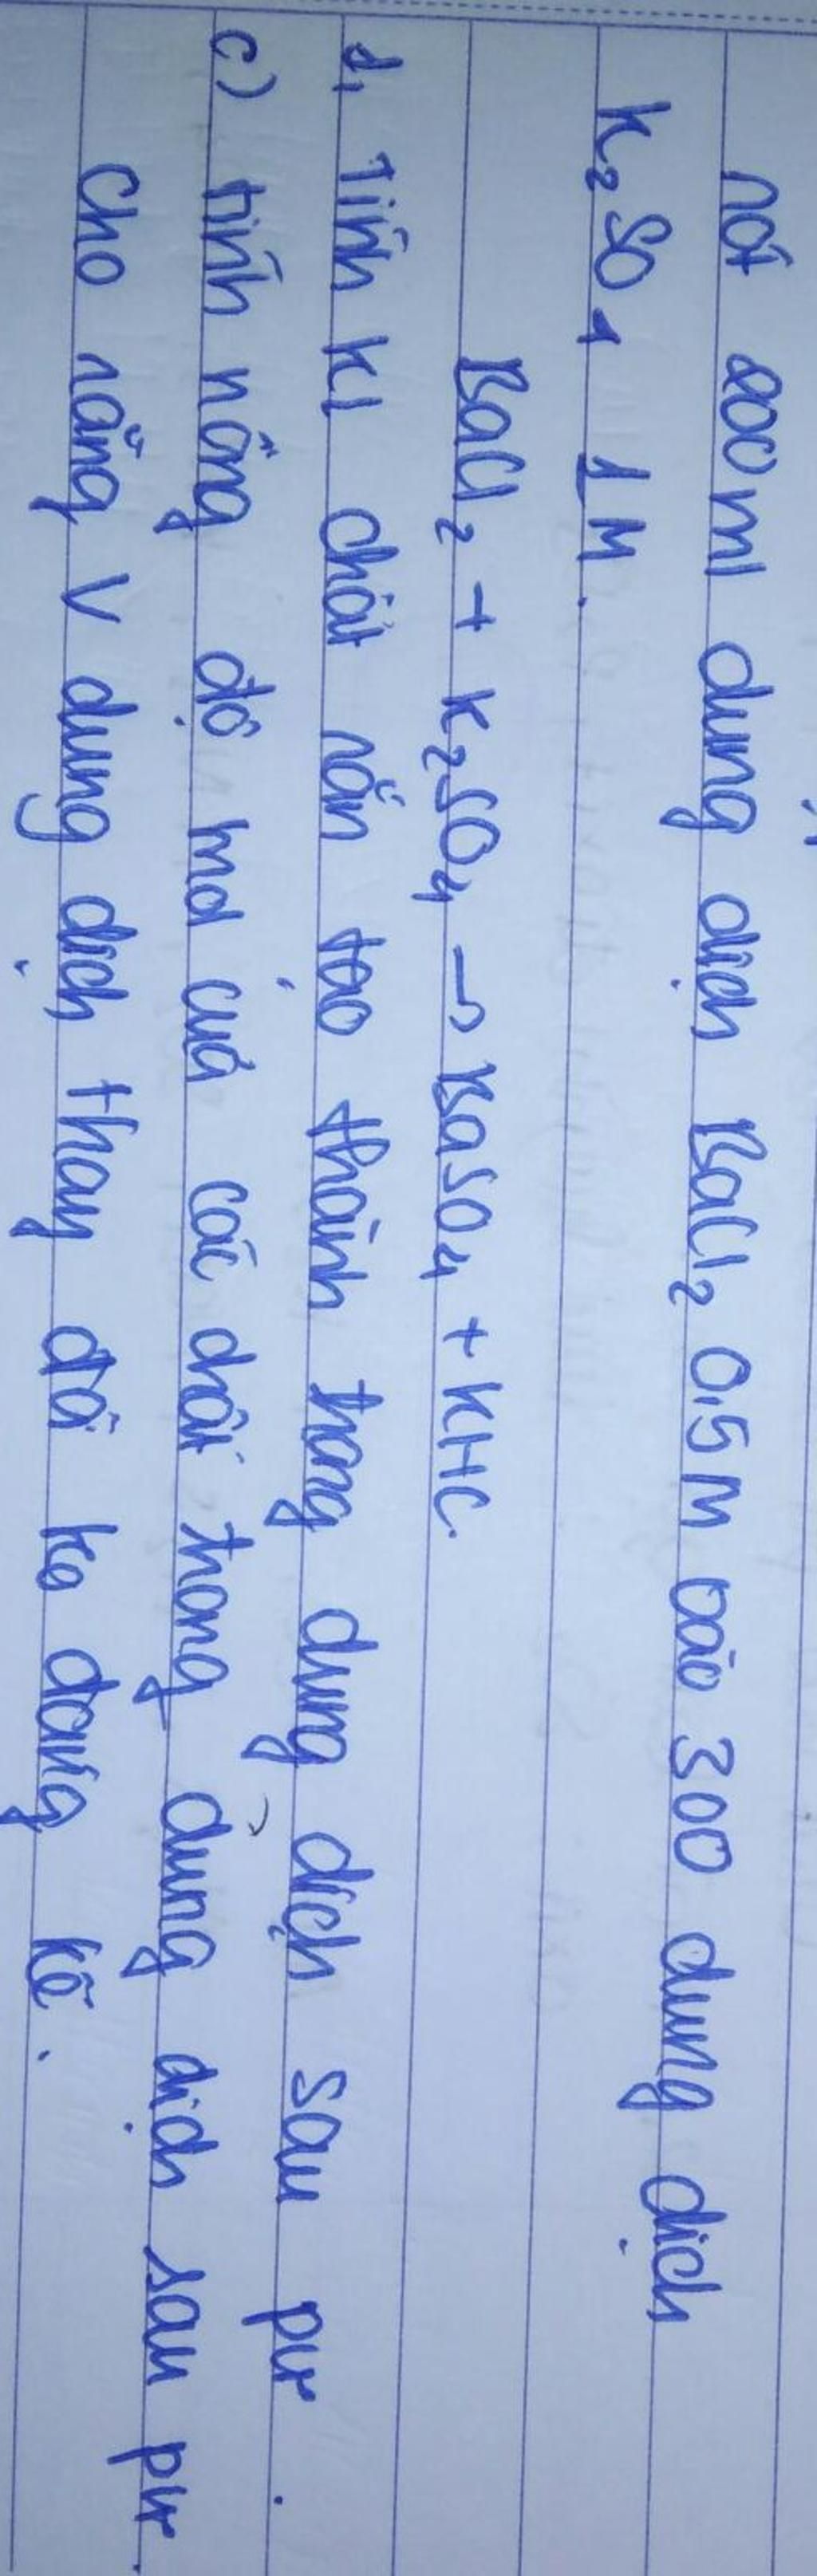 rót 200ml dung dịch BaCl₂ 0,5M vào 300 dung dịch
K₂SO₄ 1M.
BaCl₂ + K₂SO₄ → BaSO₄ + KHC.
d, Tính kl chất rắn tạo thành trong dung dịch sau pư.
c) tính nồng độ mol của các chất trong dung dịch sau pư.
Cho rằng V dung dịch thay đổi ko đáng kể.